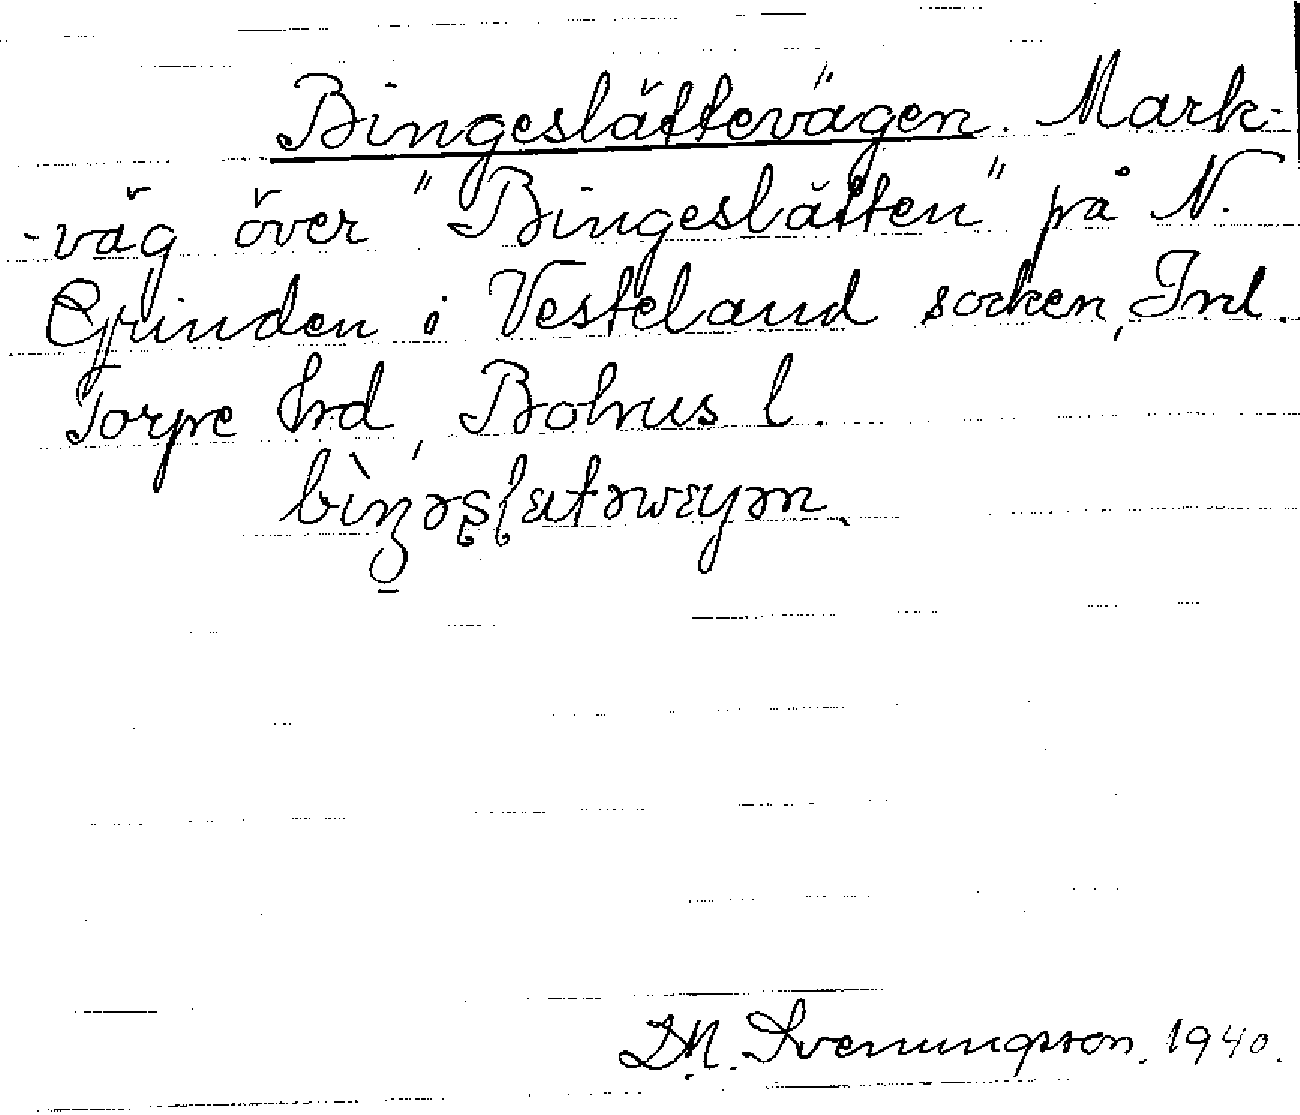 Bingeslättevägen. Mark-
-väg över "Bingeslätten" på N.
Grinden i Vesteland socken, Inl.
Torpe Hrd, Bohus l.
D.N. Svenungsson. 1940.